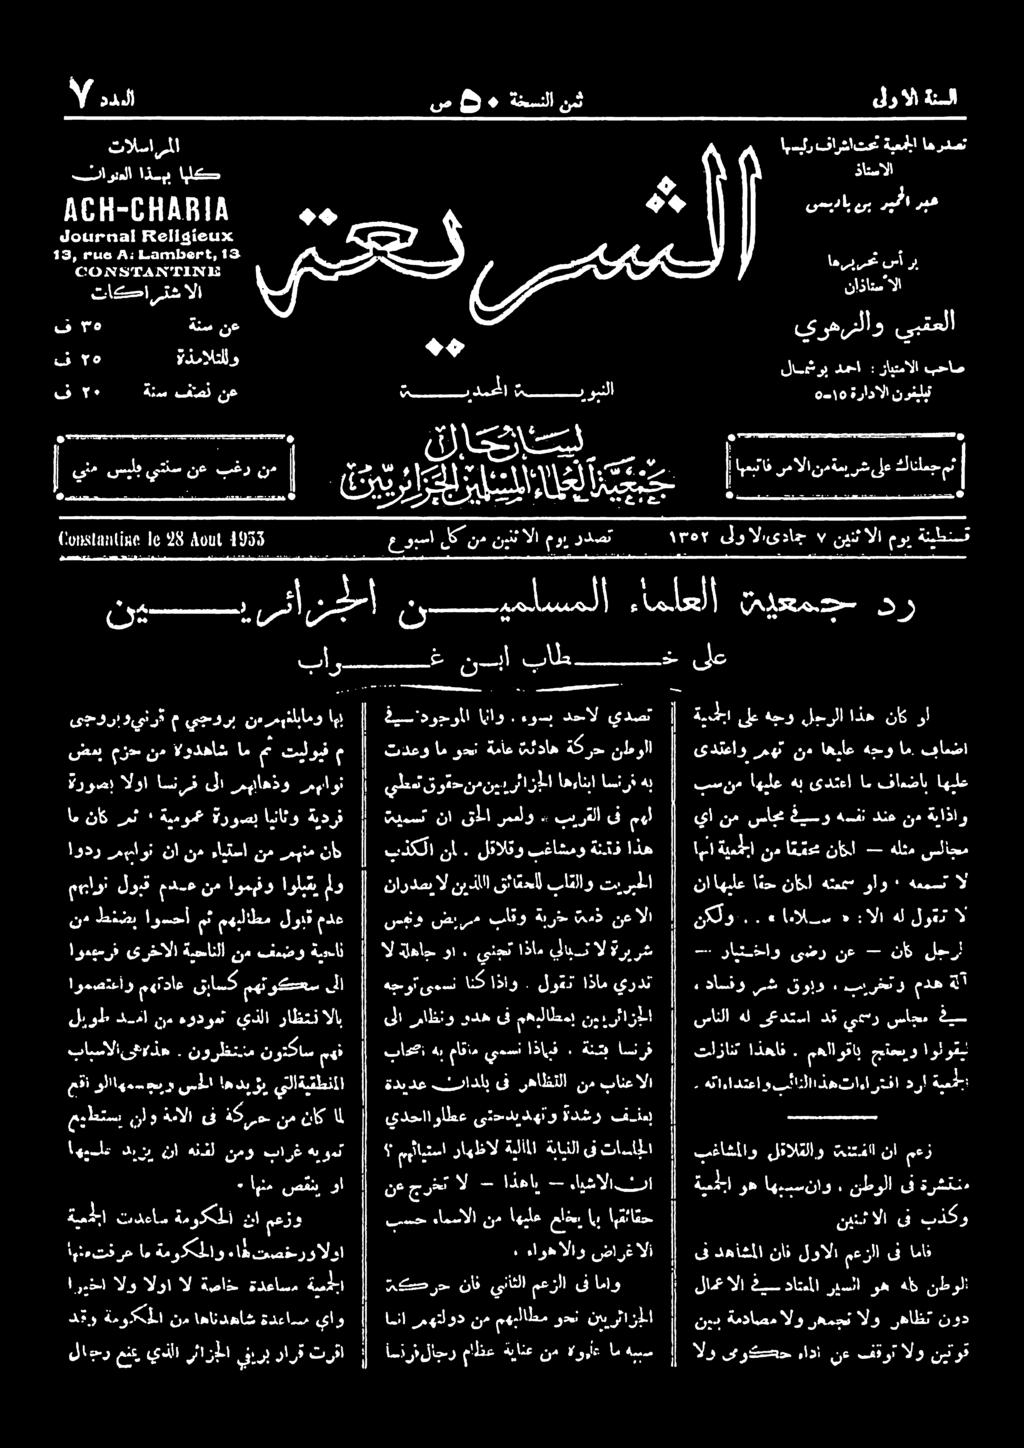 السنة الاولى
ثمن النسخة ٥٠ ص
العدد ٧
تصدرها الجمعية تحت اشراف رئيسها
الاستاذ
عبد الحميد بن باديس
يرأس تحريرها
الأستاذان
العقبي والزهري
صاحب الامتياز : احمد بوشمال
تيليفون الادارة ١٥-٥
الشريعة
النبويــــة المحمديــــة
المراسلات
كلها بهذا العنوان
ACH-CHARIA
Journal Religieux
13, rue A. Lambert, 13
CONSTANTINE
الاشتراكات
عن سنة ٣٥ ف
وللتلامذة ٢٥ ف
عن نصف سنة ٢٠ ف
ثم جعلناك على شريعة من الامر فاتبعها
لسان حال
جمعية العلماء المسلمين الجزائريين
من رغب عن سنتي فليس مني
قسنطينة يوم الاثنين ٧ جمادى الاولى ١٣٥٢
تصدر يوم الاثنين من كل اسبوع
Constantine le 28 Aout 1933
رد جمعية العلماء المسلميــــن الجزائريــــين
على خــــطاب ابن غــــراب
لو كان هذا الرجل وجه على الجمعية
اضعاف ما وجه عليها من تهم واعتدى
عليها باضعاف ما اعتدى به عليها من سب
واذاية من عند نفسه وفي مجلس من اي
مجالس مثله — لكان محققا من الجمعية انها
لا تسمعه ، ولو سمعته لكان حقا عليها ان
لا تقول له الا : « سلاما » . . ولكن
الرجل كان — عن رضى واختيار —
آلة هدم وتخريب ، وبوق شر وفساد ،
في مجلس رسمي قد استدعي له الناس
ليقولوا ويحتج باقوالهم . فلهذا تنازلت
الجمعية لرد افتراءات هذا النائب واعتداءاته .
زعم ان الفتنة والقلاقل والمشاغب
منتشرة في الوطن ، وان سببها هو الجمعية
وكذب في الاثنين
فاما في الزعم الاول فان المشاهد في
الوطن كله هو السير المعتاد في الاعمال
دون تظاهر ولا تجمهر ولا مصادمة بين
قوتين ولا توقف عن اداء حكومي ولا
تصدي لاحد بسوء . وانما الموجود في
الوطن حركة هادئة عامة نحو ما وعدت
به فرنسا ابناءها الجزائريين من حقوق تعطى
لهم في القريب . ولعمر الحق ان تسمية
هذا فتنة ومشاغب وقلاقل . لمن الكذب
الحبريت والقلب للحقائق اللذين لا يصدران
الا عن ذمة خربة وقلب مريض ونفس
شريرة لا تبالي ماذا تجني ، او جاهلة لا
تدري ماذا تقول . واذا كنا نسمي توجه
الجزائريين بمطالبهم في هدوء ونظام الى
فرنسا فتنة ، فبماذا نسمي ما قام به اصحاب
الاعناب من التظاهر في بلدان عديدة
بعنف وشدة وتهديد حتى عطلوا احدى
الجلسات في النيابة المالية لاظهار استيائهم ؟
ان الاشياء — ياهذا — لا تخرج عن
حقائقها بما يخلع عليها من الاسماء حسب
الاغراض والاهواء .
واما في الزعم الثاني فان حركة
الجزائريين نحو مطالبهم من دولتهم انما
سببه ما رأوه من عناية عظام رجال فرنسا
بها وما بلغهم من بروجي م فيوليت
م فيوليت ثم ما شاهدوه من حزم بعض
نوابهم وذهابهم الى فرنسا اولا بصورة
فردية وثانيا بصورة عمومية ، ثم كان ما
كان منهم من استياء من ان نوابهم ردوا
ولم يقبلوا وفهموا من عدم قبول نوابهم
عدم قبول مطالبهم ثم احسوا بضغط من
ناحية وضعف من الناحية الاخرى فرجعوا
الى سكوتهم كسابق عادتهم واعتصموا
بالانتظار الذي تعودوه من امد طويل
فهم ساكتون منتظرون . هذه هي الاسباب
المنطقية التي يؤيدها الحس ويشهد بها الواقع
لما كان من حركة في الامة ولن يستطيع
تمويه غراب ومن لقنه ان يزيد عليها
او ينقص منها .
وزعم ان الحكومة ساعدت الجمعية
اولا ورخصت لها، والحكومة ما عرفت منها
الجمعية مساعدة خاصة لا اولا ولا اخيرا
واي مساعدة شاهدناها من الحكومة وقد
اقرت قرار بريفي الجزائر الذي يمنع رجال